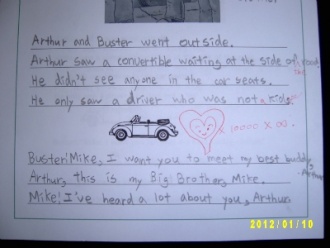 Arthur and Buster went outside.
Arthur saw a convertible waiting at the side of road
He didn't see anyone in the car seats.
He only saw a driver who was not a kids.
x 10000 x ∞.
Buster: Mike, I want you to meet my best buddy,
Arthur, this is my Big Brother, Mike. Arthur
Mike: I've heard a lot about you, Arthur.
2012/01/10